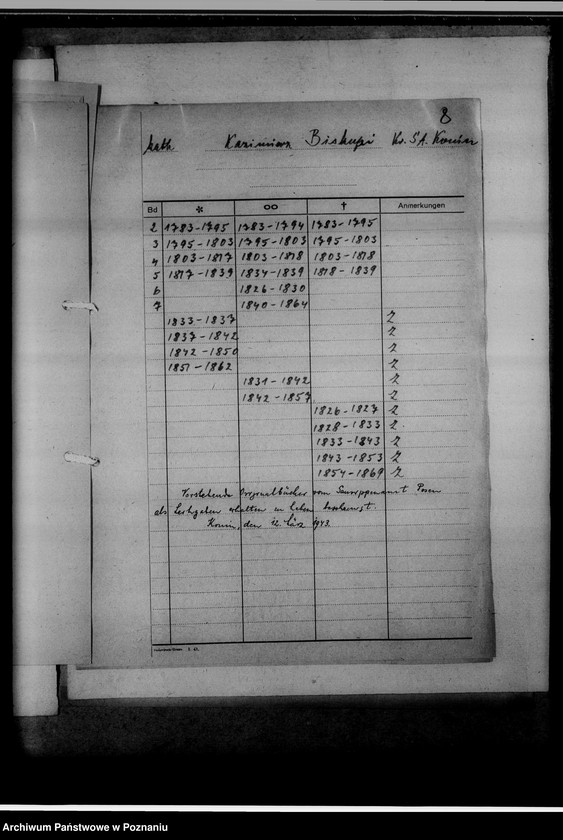 8
kath Kazimierz Biskupi Kr. S.A. Konin
Bd * ∞ † Anmerkungen
2 1783-1795 1783-1794 1783-1795
3 1795-1803 1795-1803 1795-1803
4 1803-1817 1803-1818 1803-1818
5 1817-1839 1834-1839 1818-1839
6 1826-1830
7 1840-1864
1833-1837 Z
1837-1842 Z
1842-1850 Z
1851-1862 Z
1831-1842 Z
1842-1857 Z
1826-1827 Z
1828-1833 Z
1833-1843 Z
1843-1853 Z
1854-1869 Z
Vorstehende Originalbücher vom Posen
als erhalten zu haben bescheinigt.
Konin, den 12. März 1943.
Archiwum Państwowe w Poznaniu